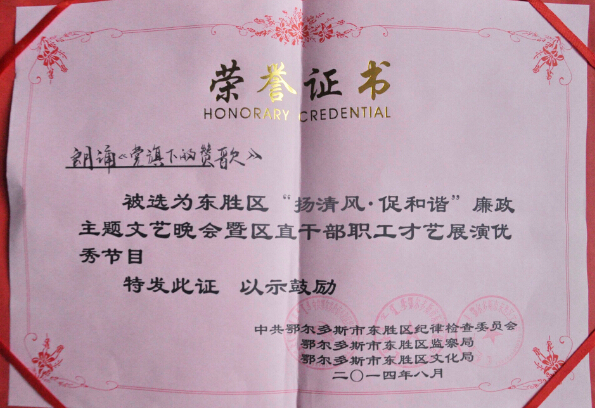 荣誉证书
HONORARY CREDENTIAL
朗诵《党旗下的赞歌》
被选为东胜区“扬清风·促和谐”廉政
主题文艺晚会暨区直干部职工才艺展演优
秀节目
特发此证 以示鼓励
中共鄂尔多斯市东胜区纪律检查委员会
鄂尔多斯市东胜区监察局
鄂尔多斯市东胜区文化局
二〇一四年八月